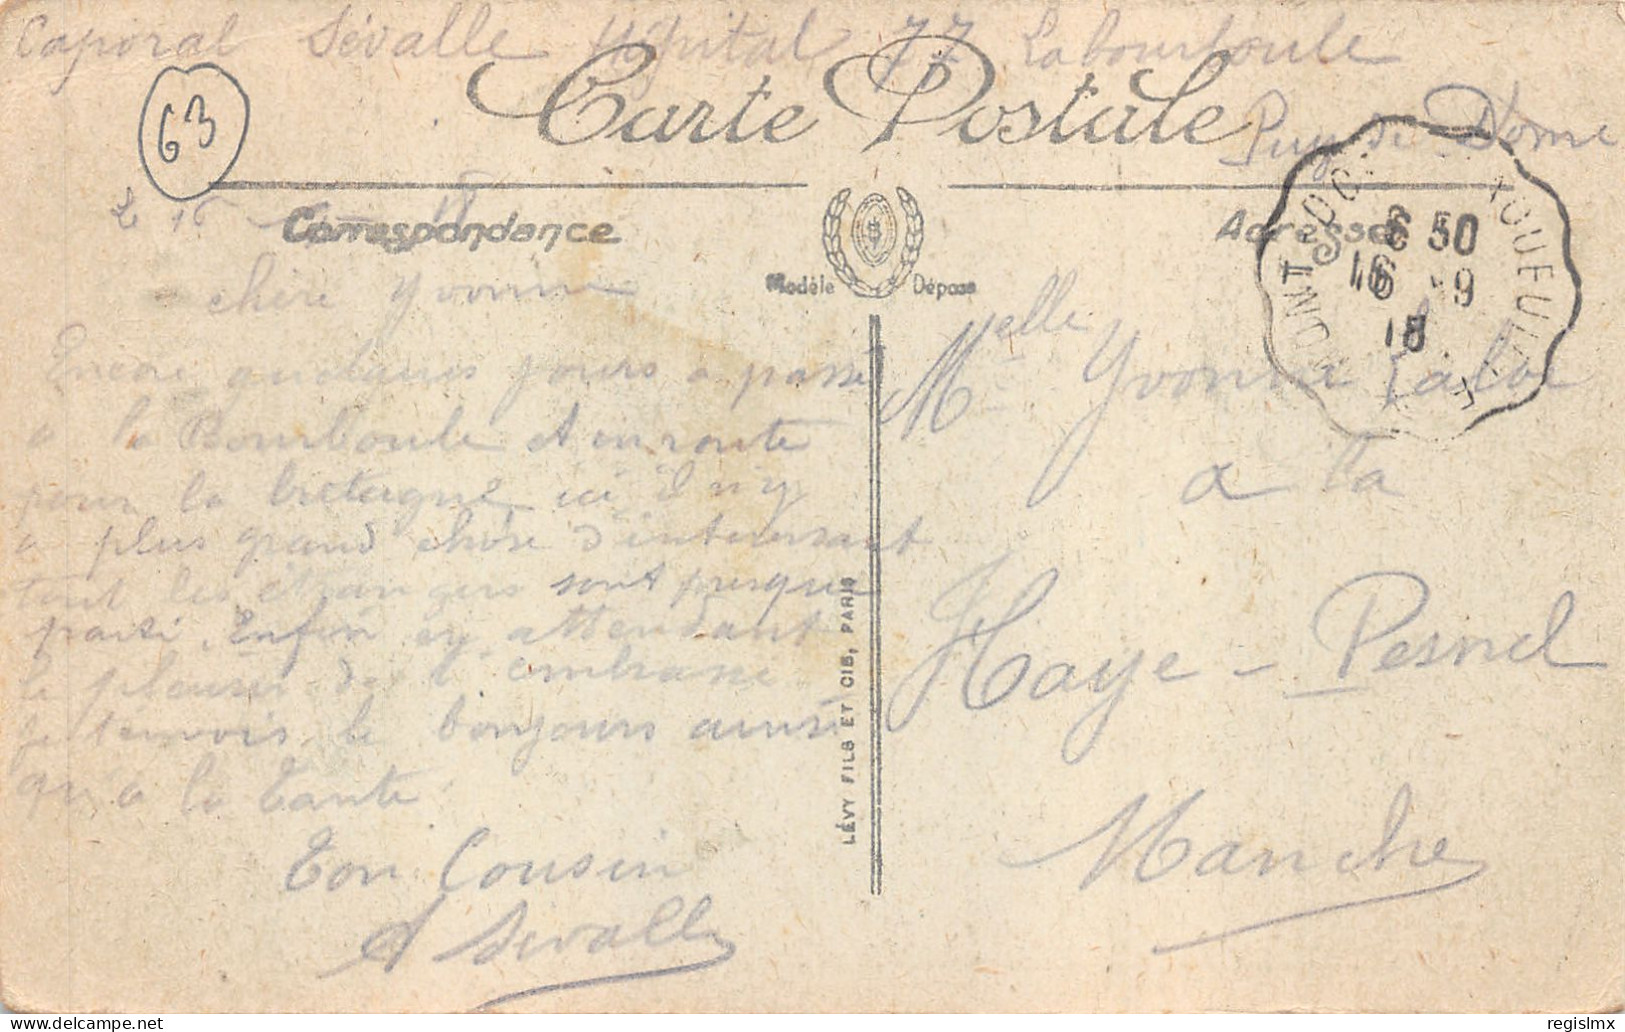 Caporal Sévalle Hôpital 77 Labourboule
Carte Postale
Puy de Dome
63
Correspondance
Adresse
Modèle Déposé
6 50
16 -9
18
chère Yvonne
Encore quelques jours a passé
a la Bourboule et en route
pour la bretagne ici il n'y
a plus grand chose d'interessant
tout les etrangers sont presque
parti. Enfin en attendant
le plaisir de t'embrasse
je tenvois le bonjours ainsi
qu'a la tante
Ton Cousin
A Sévalle
LÉVY FILS ET CIE, PARIS
Melle Yvonne
a la
Haye-Pesnel
Manche
© regislmx